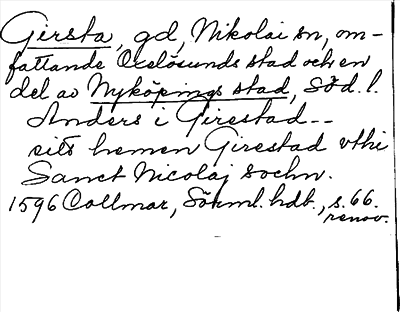 Girsta, gd, Nikolai sn, om-
fattande Oxelösunds stad och en
del av Nyköpings stad, Söd. l.
Anders i Girestad--
sitt hemen Girestad vthi
Sanct Nicolaj sochn.
1596 Collmar, Sörml. hdb., s. 66.
renov.